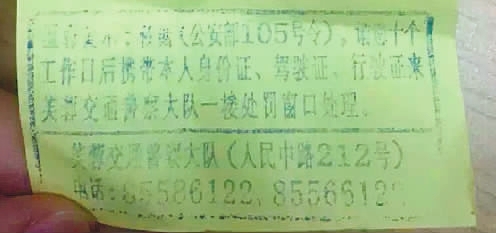 （公安部105号令），请您十个
工作日后携带本人身份证、驾驶证、行驶证来
芙蓉交通警察大队一楼处罚窗口处理。
芙蓉交通警察大队（人民中路212号）
电话：85586122、8556612